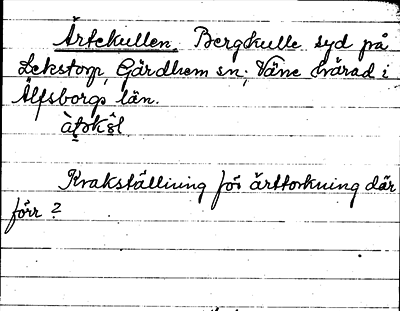 Ärtekullen. Bergkulle syd på
Lekstorp, Gärdhem sn; Väne härad i
Älfsborgs län.
Krakställning för ärttorkning där
förr?